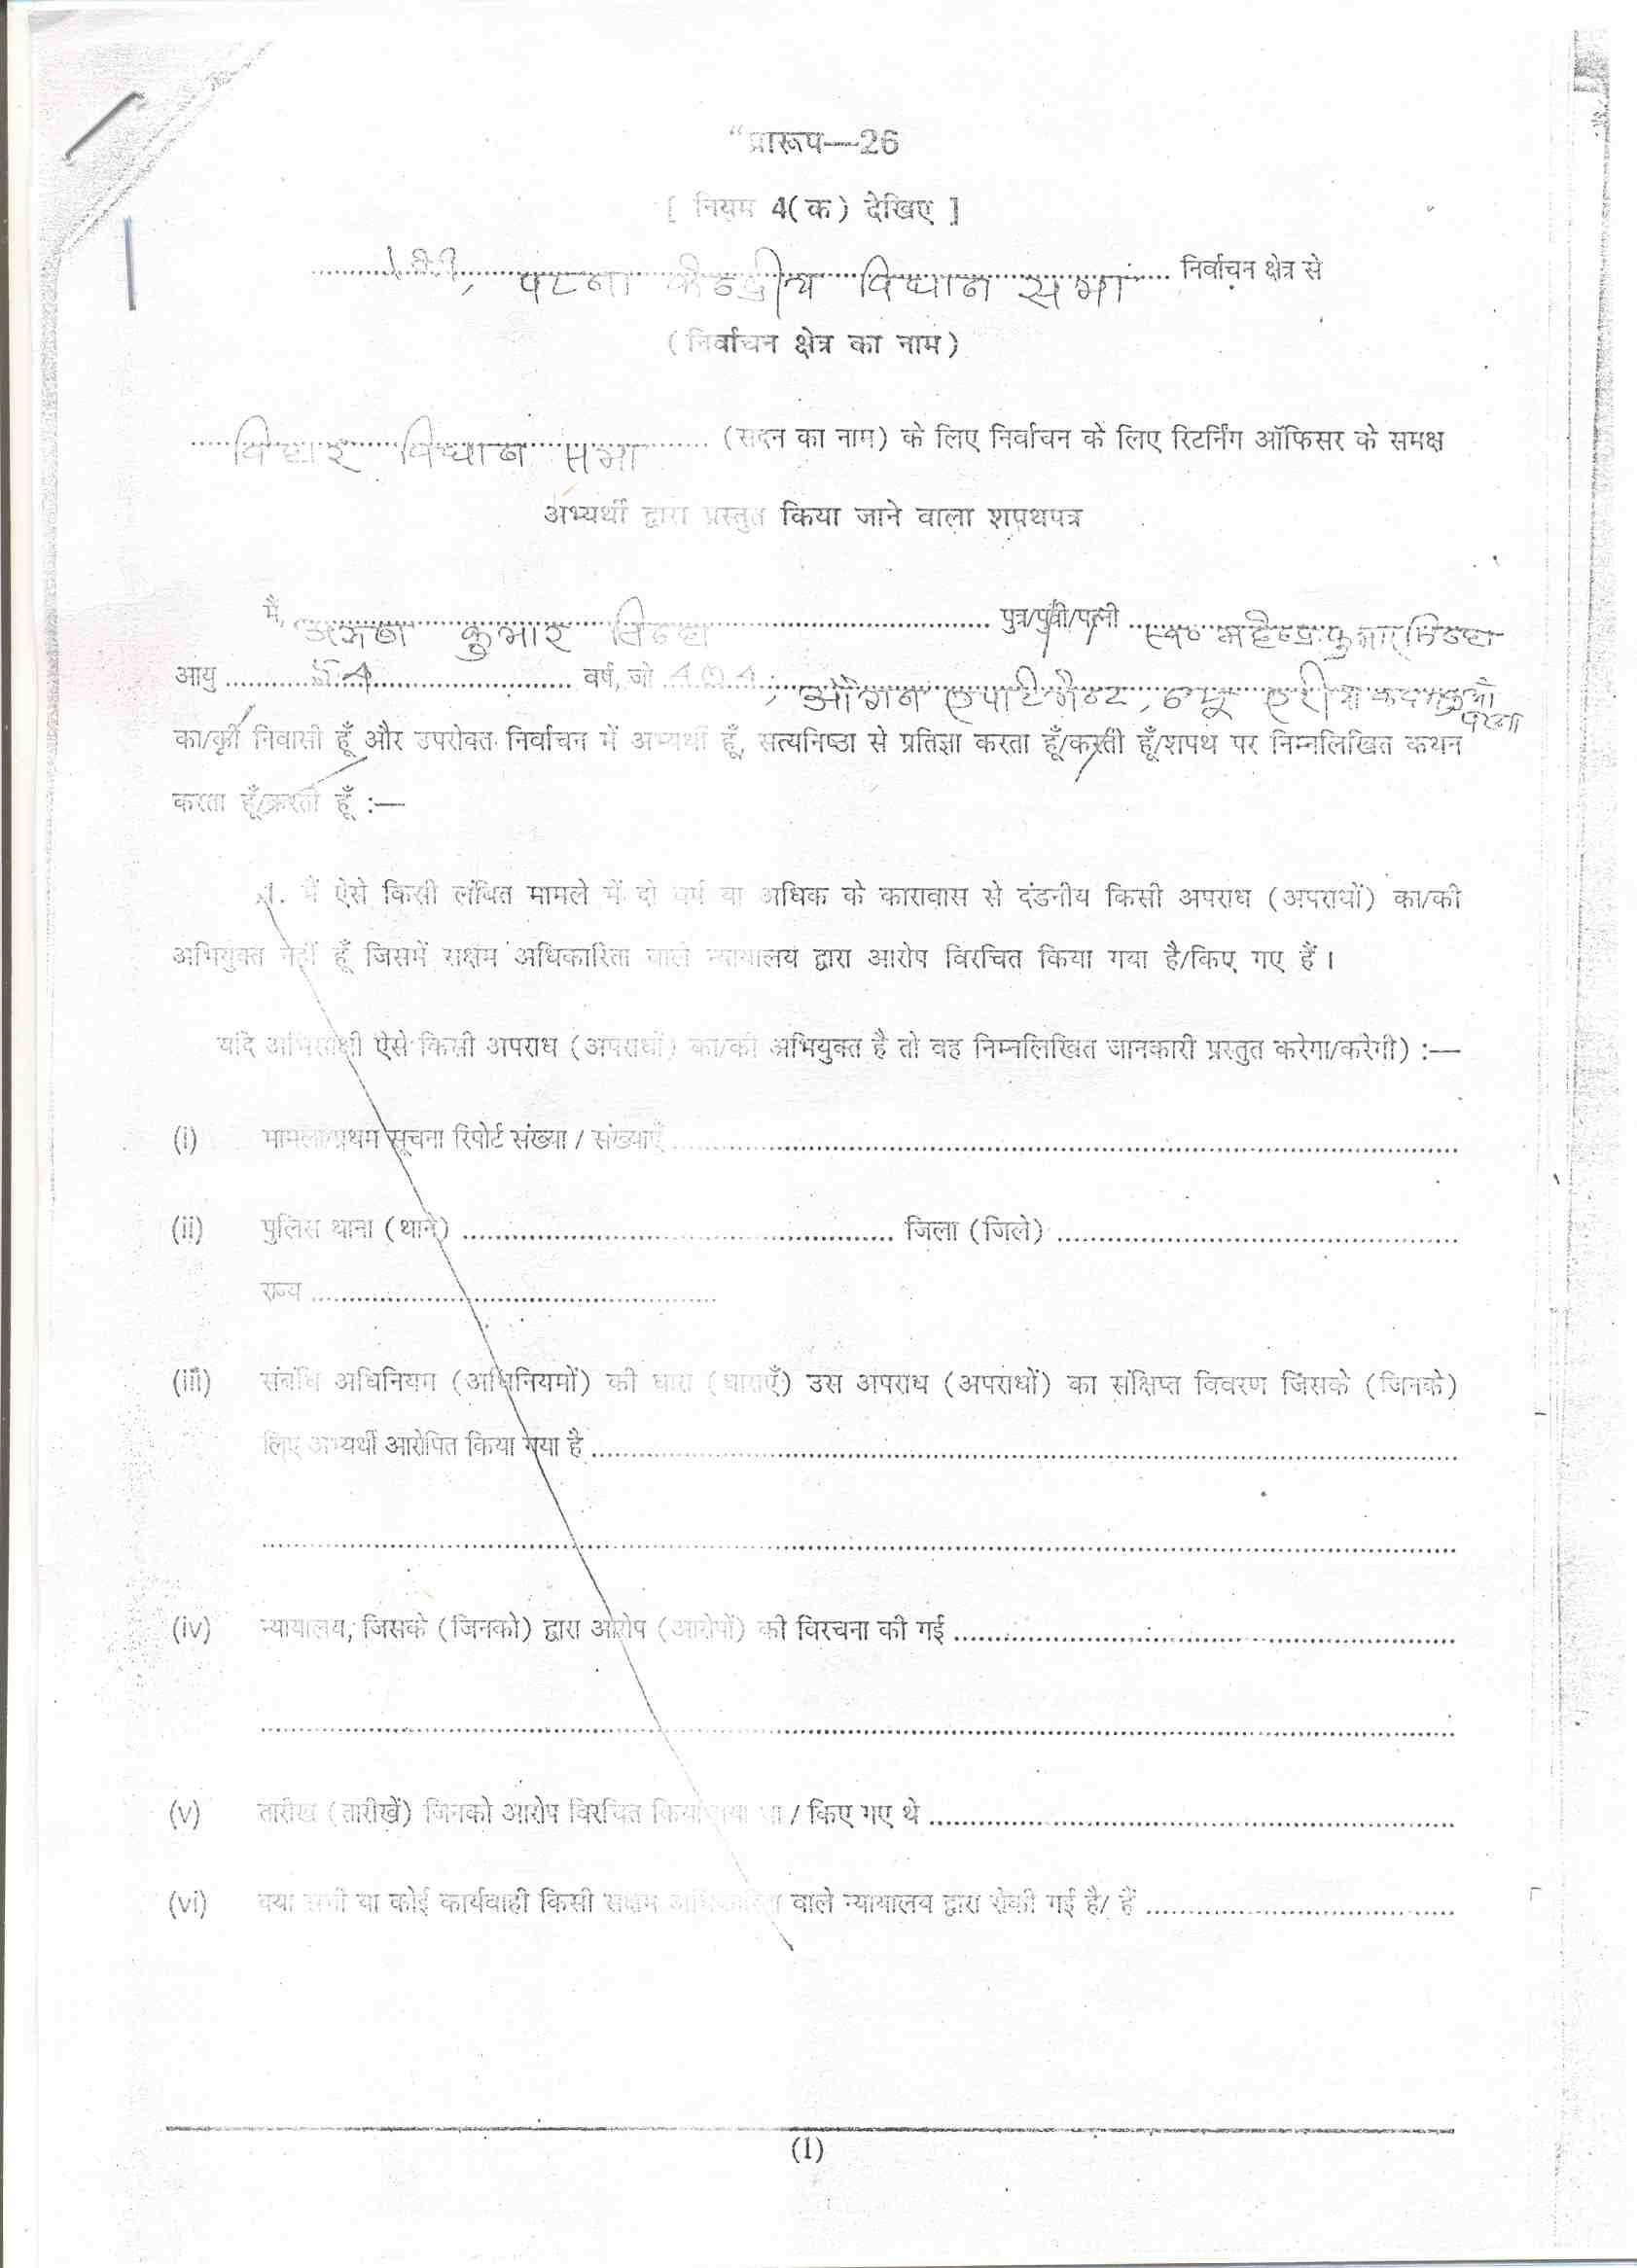 “प्रारूप—26
[ नियम 4(क) देखिए ]
पटना केन्द्रीय विधान सभा निर्वाचन क्षेत्र से
(निर्वाचन क्षेत्र का नाम)
विहार विधान सभा (सदन का नाम) के लिए निर्वाचन के लिए रिटर्निंग ऑफिसर के समक्ष
अभ्यर्थी द्वारा प्रस्तुत किया जाने वाला शपथपत्र
मैं, कुमार सिन्हा पुत्र/पुत्री/पत्नी स्व० महेन्द्र कुमार सिन्हा
आयु 54 वर्ष, जो 404, अपार्टमेन्ट, न्यू कदमकुआँ
पटना
का/की निवासी हूँ और उपरोक्त निर्वाचन में अभ्यर्थी हूँ, सत्यनिष्ठा से प्रतिज्ञा करता हूँ/करती हूँ/शपथ पर निम्नलिखित कथन
करता हूँ/करती हूँ :—
1. मैं ऐसे किसी लंबित मामले में दो वर्ष या अधिक के कारावास से दंडनीय किसी अपराध (अपराधों) का/की
अभियुक्त नहीं हूँ जिसमें सक्षम अधिकारिता वाले न्यायालय द्वारा आरोप विरचित किया गया है/किए गए हैं ।
यदि अभिसाक्षी ऐसे किसी अपराध (अपराधों) का/की अभियुक्त है तो वह निम्नलिखित जानकारी प्रस्तुत करेगा/करेगी) :—
(i) मामला/प्रथम सूचना रिपोर्ट संख्या / संख्याएँ
(ii) पुलिस थाना (थाने) जिला (जिले)
राज्य
(iii) संबंधि अधिनियम (अधिनियमों) की धारा (धाराएँ) उस अपराध (अपराधों) का संक्षिप्त विवरण जिसके (जिनके)
लिए अभ्यर्थी आरोपित किया गया है
(iv) न्यायालय, जिसके (जिनको) द्वारा आरोप (आरोपों) की विरचना की गई
(v) तारीख (तारीखें) जिनको आरोप विरचित किया गया था / किए गए थे
(vi) क्या सभी या कोई कार्यवाही किसी सक्षम अधिकारिता वाले न्यायालय द्वारा रोकी गई है/ हैं
(1)